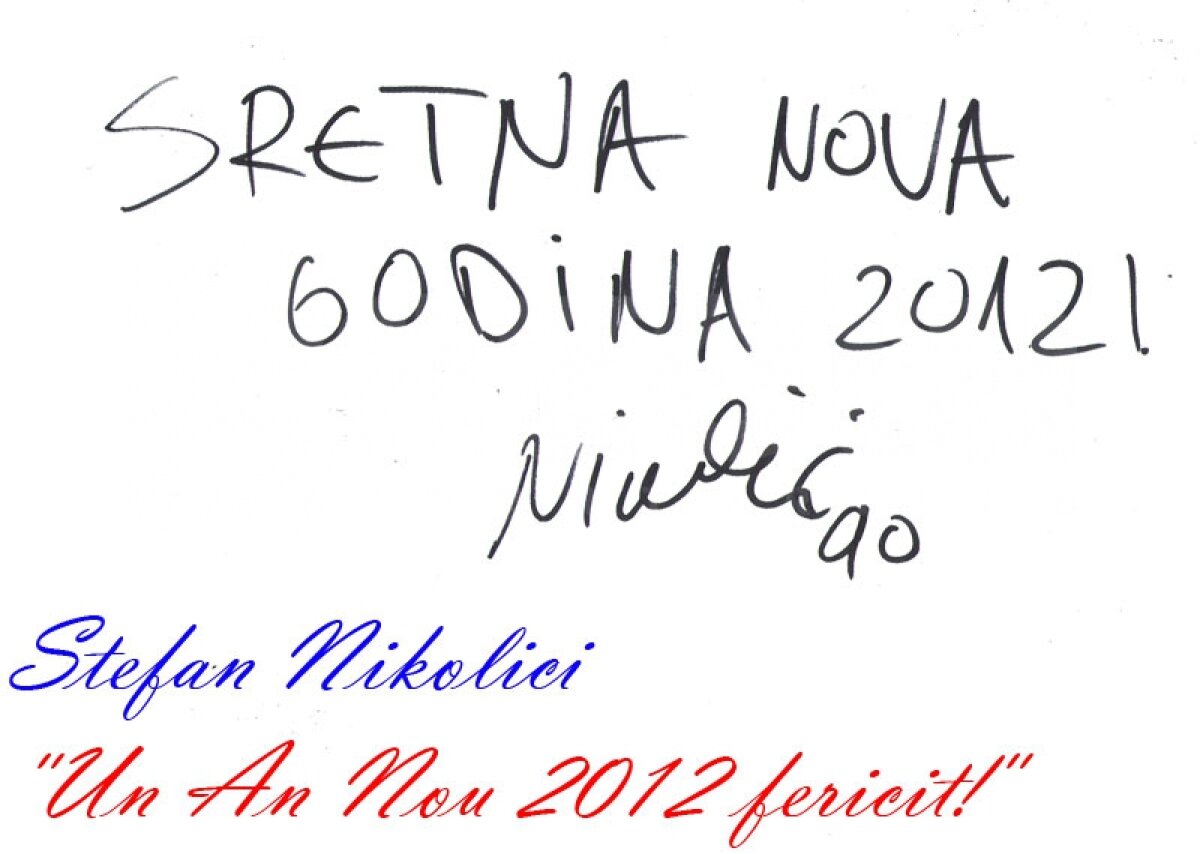 SRETNA NOVA
GODINA 2012!
90
Stefan Nikolici
"Un An Nou 2012 fericit!"